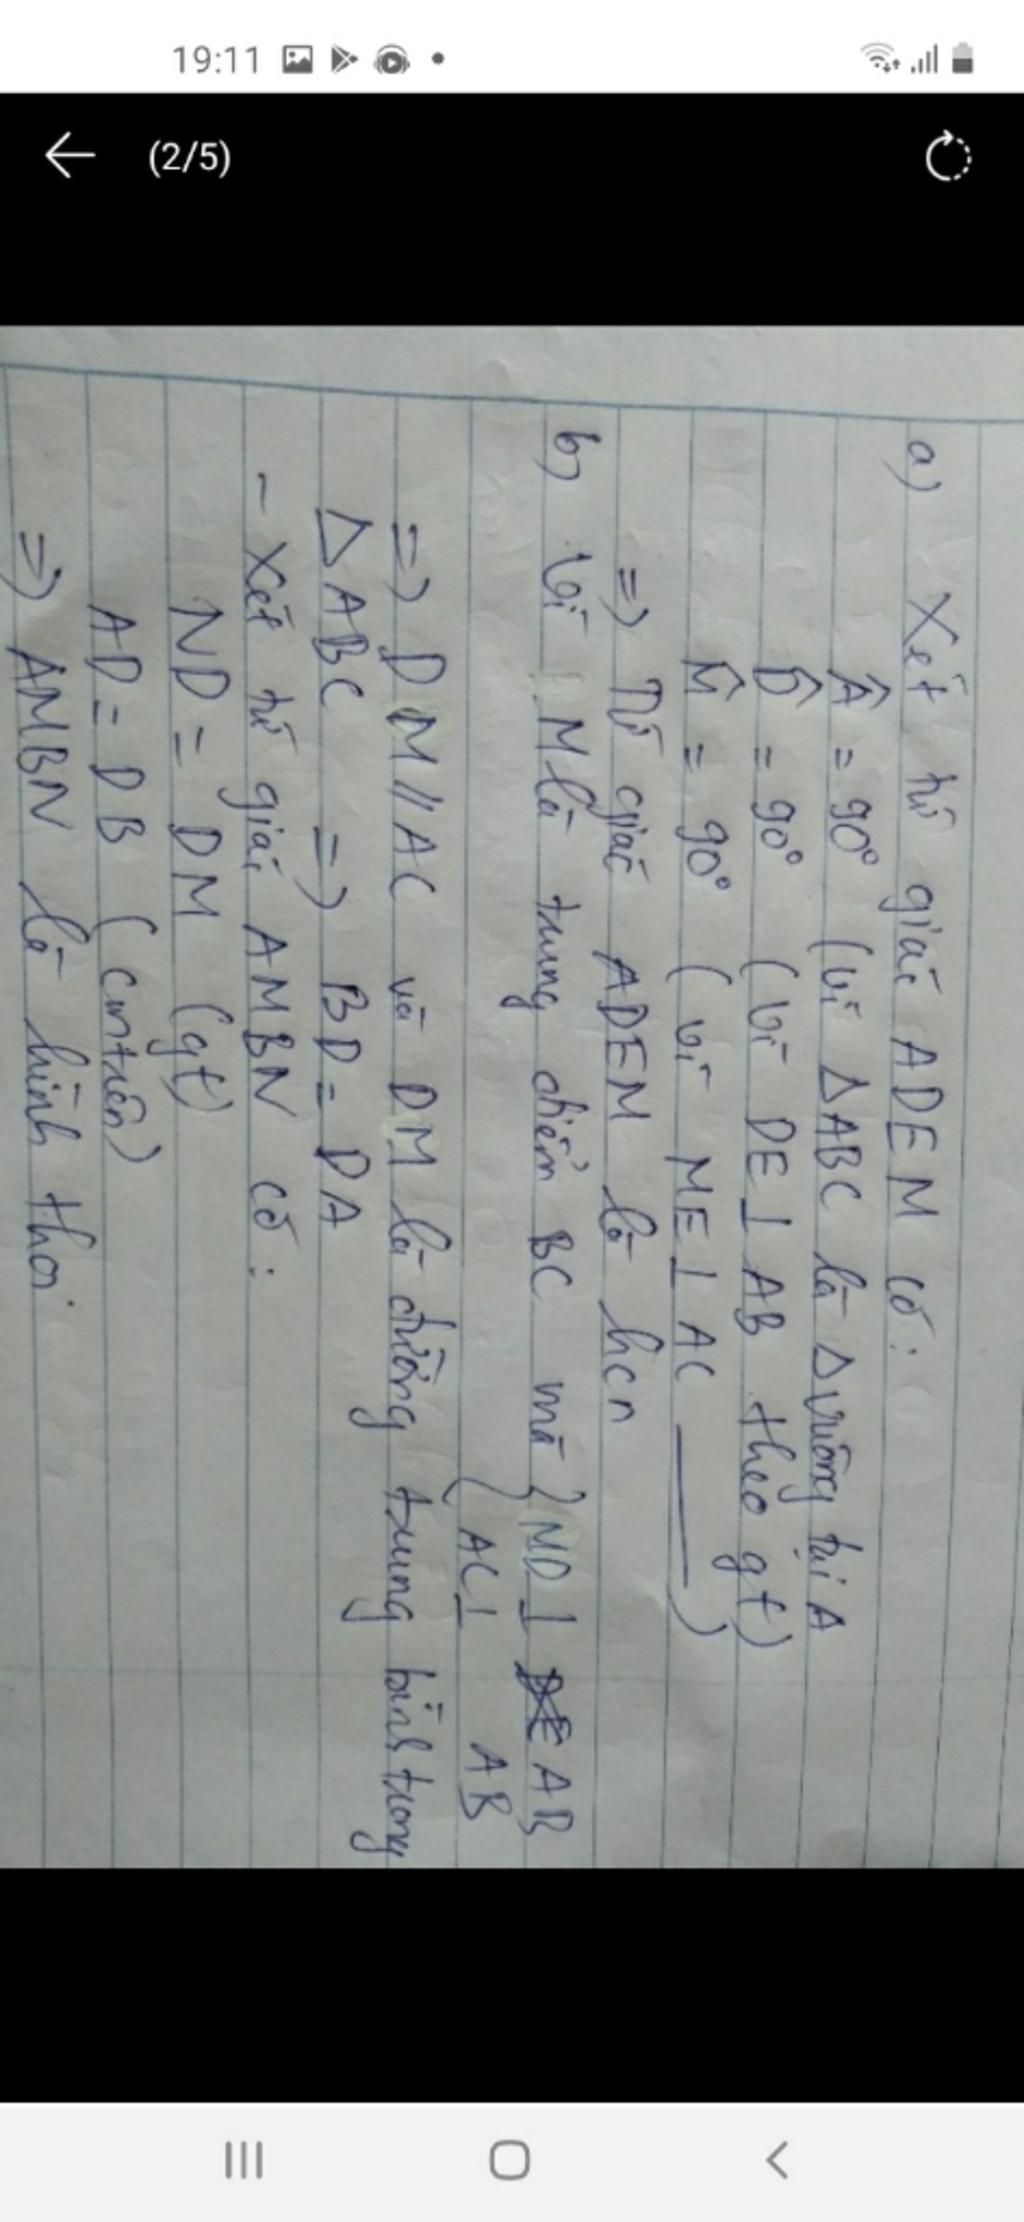 19:11
(2/5)
a) Xét tứ giác ADEM có:
Â = 90° (vì ΔABC là Δ vuông tại A
D̂ = 90° (vì DE ⊥ AB theo gt)
M̂ = 90° (vì ME ⊥ AC ———)
=) Tứ giác ADEM là hcn
b) Vì M là trung điểm BC mà { MD ⊥ AB
AC ⊥ AB
=) DM // AC và DM là đường trung bình trong
ΔABC =) BD = DA
- Xét tứ giác AMBN có:
ND = DM (gt)
AD = DB (cmtrên)
=) AMBN là hình thoi